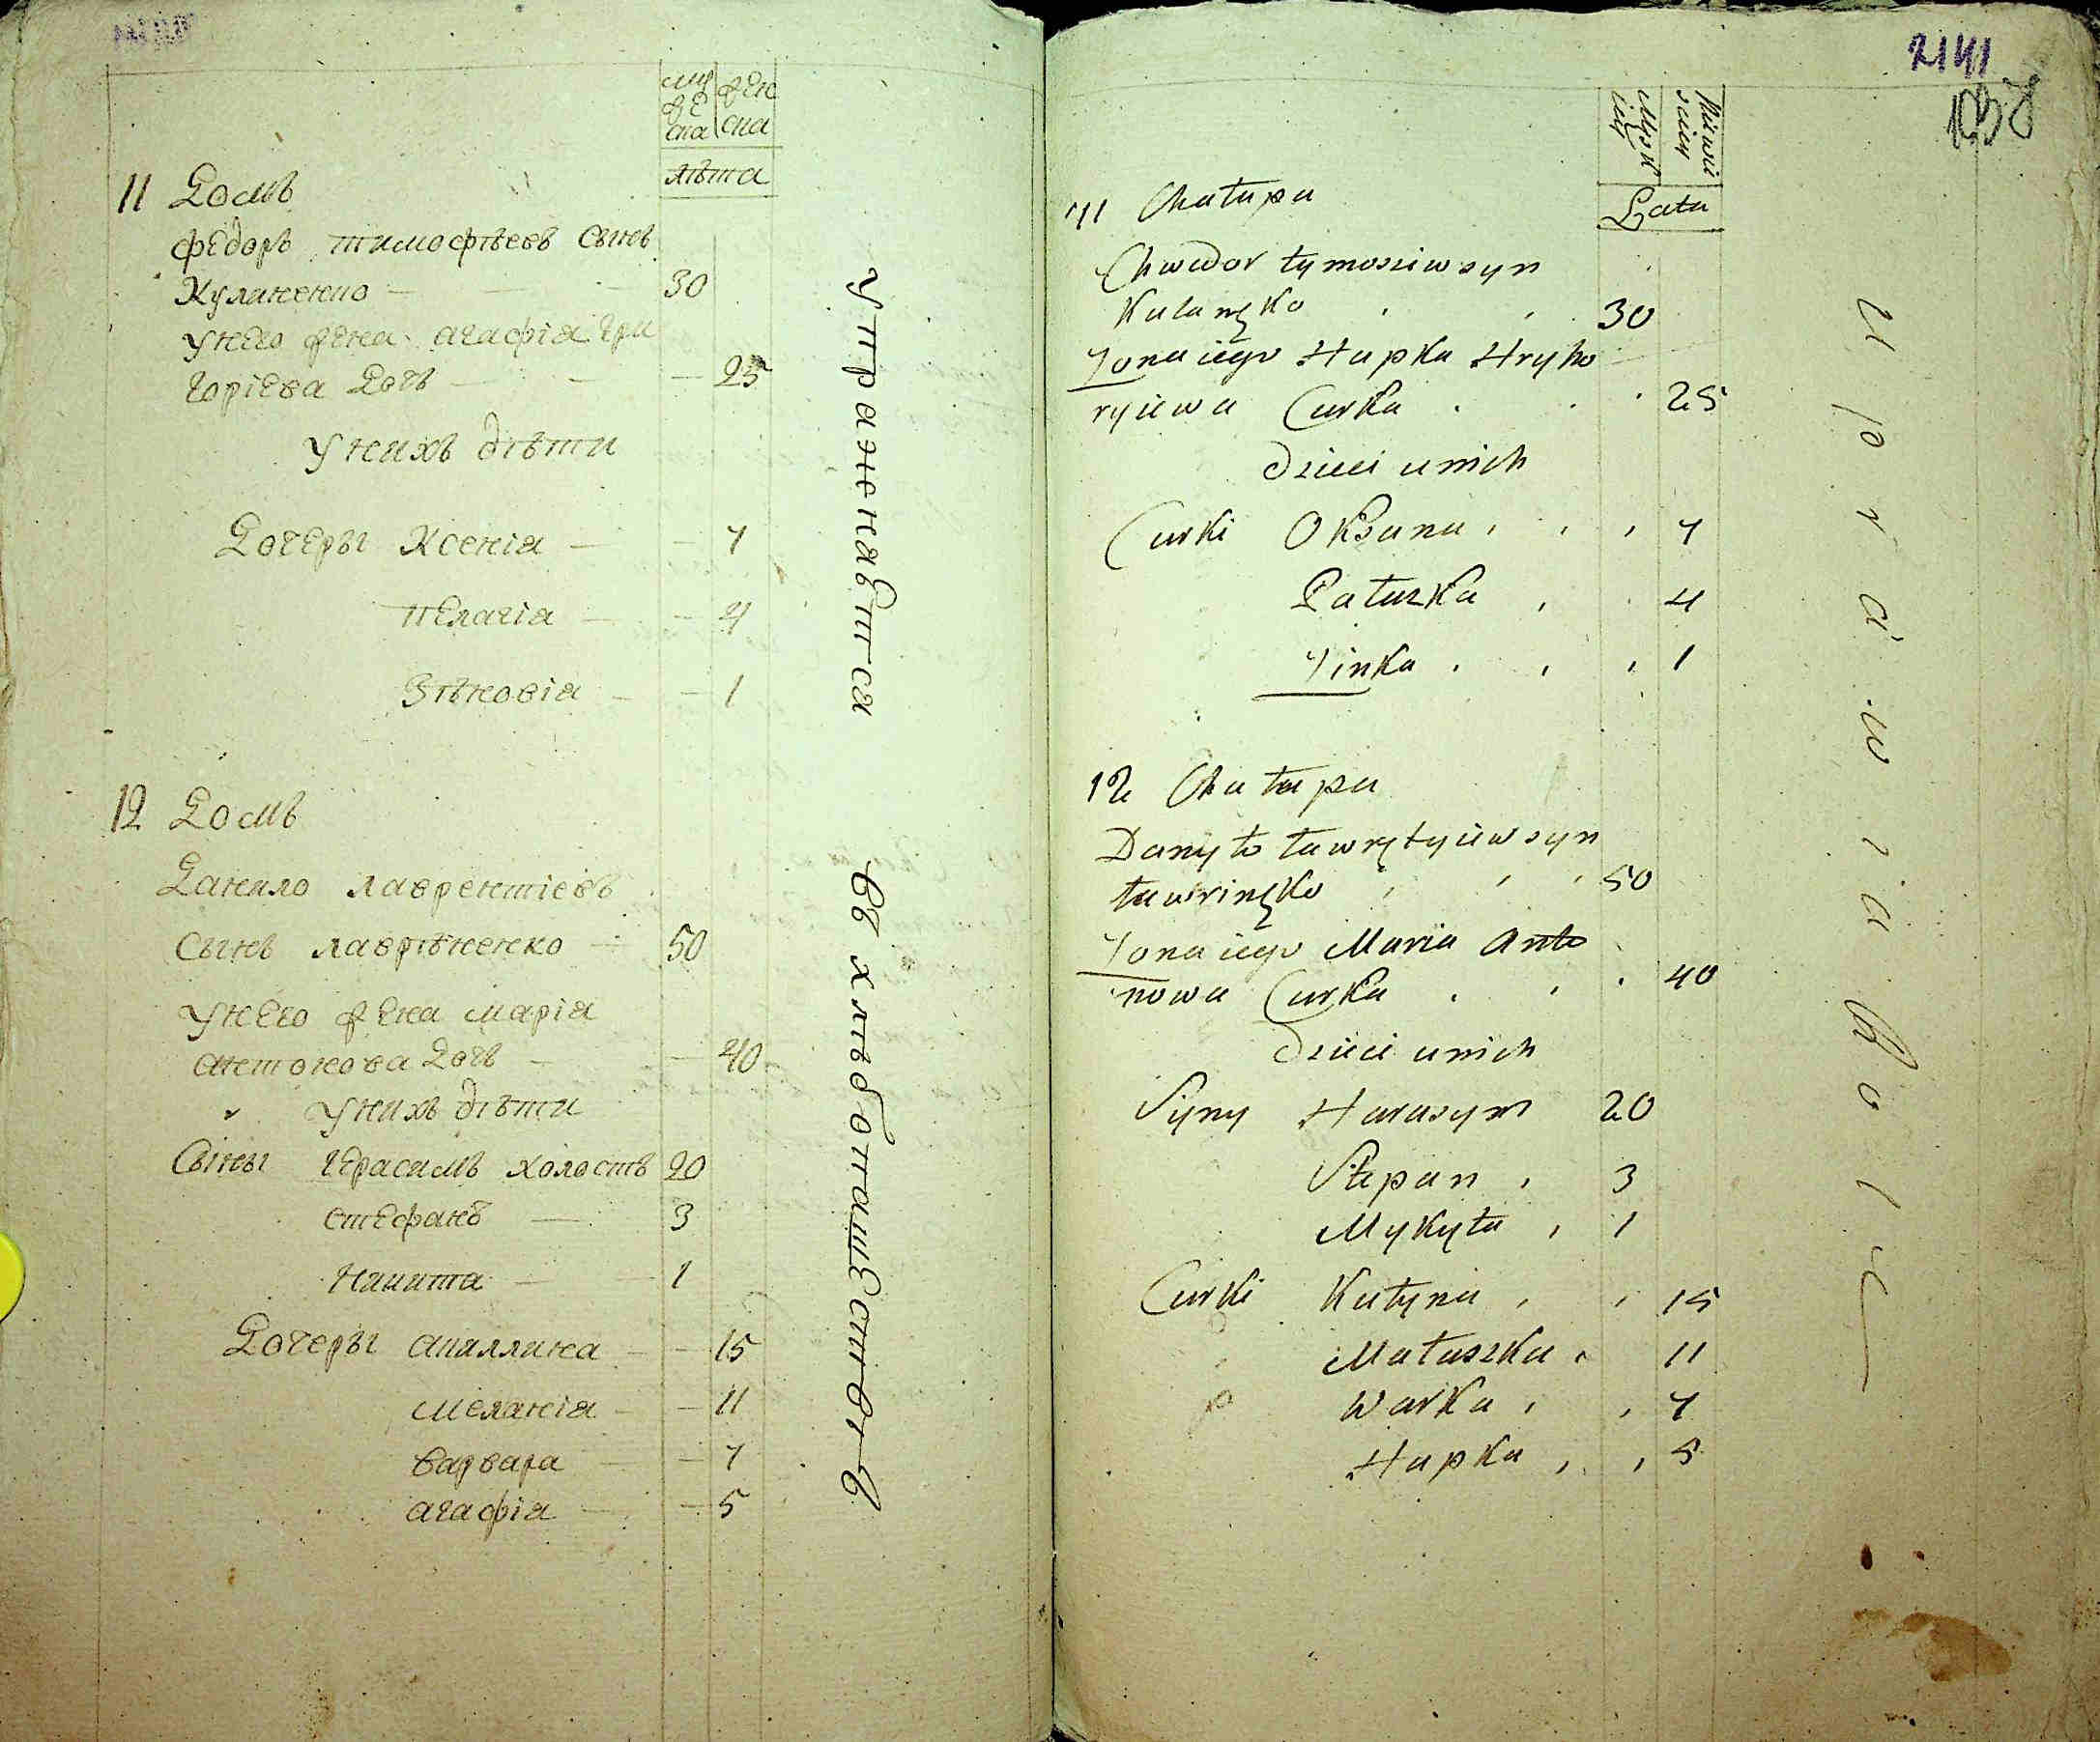 муже ска
жен ска
лѣта
11 Домъ
Федоръ тимофѣевъ сынъ
Куланенко 30
У него жена агафія Гри
горіева Дочь 25
У нихъ дѣти
Дочеры Ксенія 7
Пелагія 4
Зѣновія 1
12 Домъ
Данило лаврентіевъ
сынъ лаврѣненко 50
У него жена марія
антонова Дочь 40
У нихъ дѣти
Сыны Герасимъ холостъ 20
стефанъ 3
Никита 1
Дочеры апиллина 15
меланія 11
варвара 7
агафія 5
Упражнявтся
въ хлѣбопашествѣ
2141
Męsk iey
Lata
11 Chałupa
Chwedor tymosziw syn
Kulanęko 30
Żona iego Hapka Hryho
ryiewa Curka 25
Dzieci u nich
Curki Oksana 7
Pałaszka 4
Zinka 1
12 Chałupa
Danyło ławrętyiiw syn
ławrinęko 50
Żona iego Maria Anto
nowa Curka 40
Dzieci u nich
Syny Harasym 20
Stepan 3
Mykyta 1
Curki Kiłyna 15
Małaszka 11
Warka 7
Hapka 5
uprawia Rolę